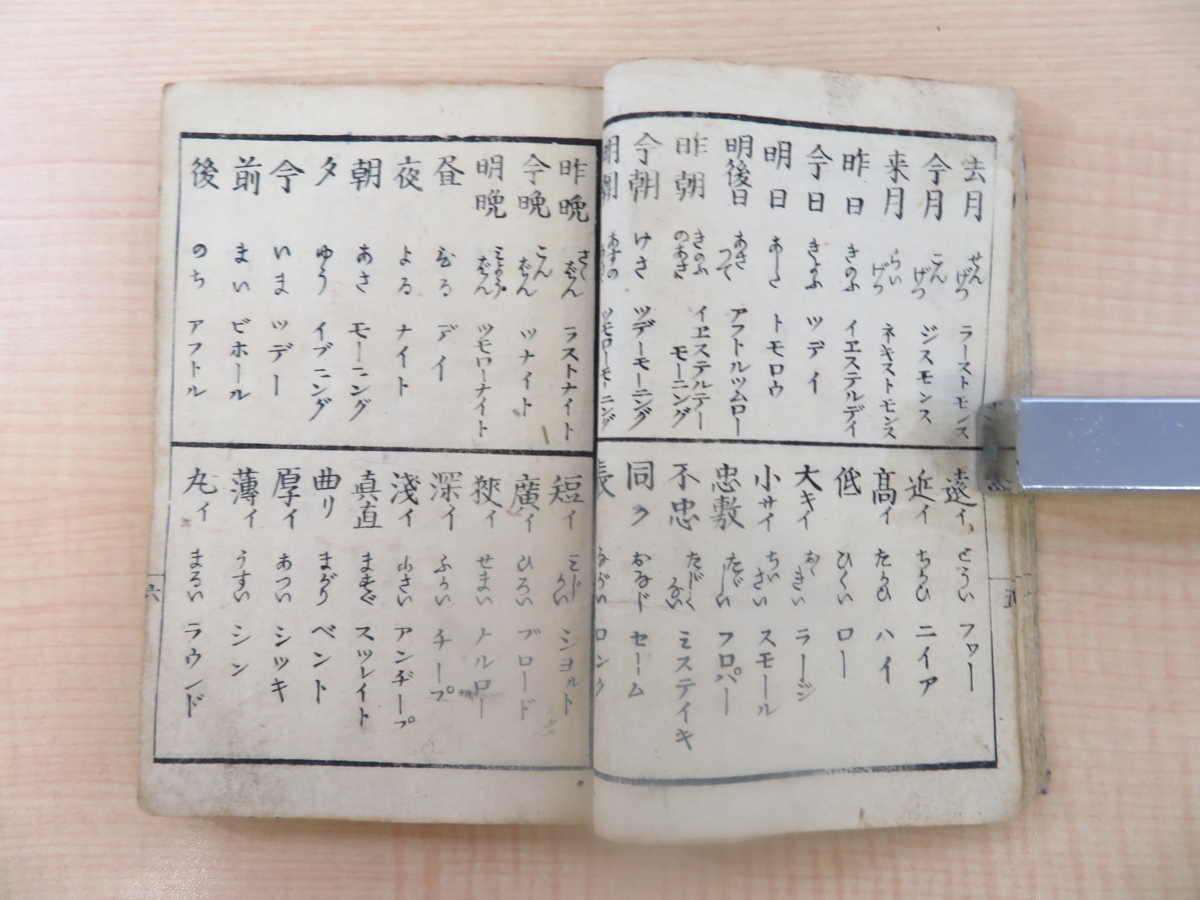 去月 せんげつ ラーストモンス
今月 こんげつ ジスモンス
来月 らいげつ ネキストモンス
昨日 きのふ イヱステルデイ
今日 きよふ ツデイ
明日 あした トモロウ
明後日 あさつて アフトルツムロー
昨朝 きのふのあさ イヱステルデーモーニング
今朝 けさ ツデーモーニング
明朝 あすの ツモローモーニング
遠イ とうい フワー
近イ ちかひ ニイア
髙イ たかひ ハイ
低 ひくい ロー
大キイ おゝきい ラージ
小サイ ちいさい スモール
忠敷 たゞしい フロパー
不忠 たゞしくない ミステイキ
同ク おなじ セーム
長 ながい ロング
昨晩 さくばん ラストナイト
今晩 こんばん ツナイト
明晩 みようばん ツモローナイト
昼 ひる デイ
夜 よる ナイト
朝 あさ モーニング
夕 ゆう イブニング
今 いま ツデー
前 まい ビホール
後 のち アフトル
短イ みじかい シヨルト
廣イ ひろい ブロード
狹イ せまい ナルロー
深イ ふかい チープ
淺イ あさい アンヂープ
真直 ますぐ スツレイト
曲リ まがり ベント
厚イ あつい シツキ
薄イ うすい シン
丸イ まるい ラウンド
六